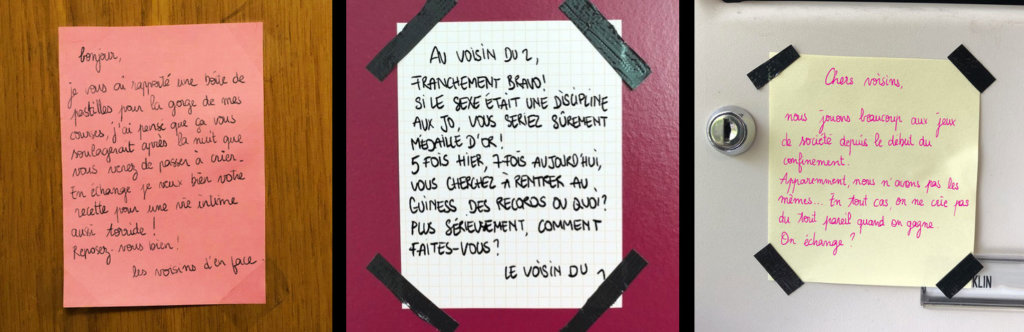 bonjour,
je vous ai rapporté une boîte de
pastilles pour la gorge de mes
courses, j'ai pensé que ça vous
soulagerait après la nuit que
vous venez de passer à crier.
En échange je veux bien votre
recette pour une vie intime
aussi torride !
Reposez-vous bien !
les voisins d'en face
AU VOISIN DU 2,
FRANCHEMENT BRAVO!
SI LE SEXE ÉTAIT UNE DISCIPLINE
AUX JO, VOUS SERIEZ SÛREMENT
MEDAILLE D'OR!
5 FOIS HIER, 7 FOIS AUJOURD'HUI,
VOUS CHERCHEZ À RENTRER AU
GUINESS DES RECORDS OU QUOI?
PLUS SÉRIEUSEMENT, COMMENT
FAITES-VOUS?
LE VOISIN DU 1
Chers voisins,
nous jouons beaucoup aux jeux
de société depuis le début du
confinement.
Apparemment, nous n'avons pas les
mêmes... En tout cas, on ne crie pas
du tout pareil quand on gagne.
On échange ?
KLIN